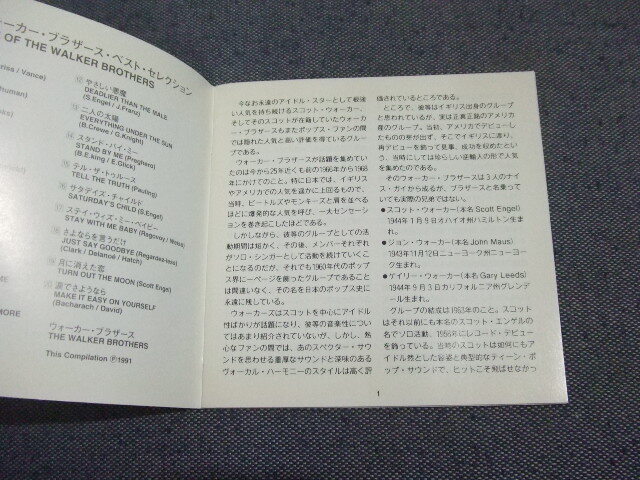 ォーカー・ブラザース・ベスト・セレクション
OF THE WALKER BROTHERS
riss / Vance)
human)
ks)
MORE
⑫ やさしい悪魔
DEADLIER THAN THE MALE
(S.Engel / J.Franz)
⑬ 二人の太陽
EVERYTHING UNDER THE SUN
(B.Crewe / G.Knight)
⑭ スタンド・バイ・ミー
STAND BY ME
(B.E.king / E.Glick)
⑮ テル・ザ・トゥルース
TELL THE TRUTH (Pauling)
⑯ サタデイズ・チャイルド
SATURDAY'S CHILD (S.Engel)
⑰ ステイ・ウィズ・ミー・ベイビー
STAY WITH ME BABY (Ragovoy / Weiss)
⑱ さよならを言うだけ
JUST SAY GOODBYE
(Clark / Delanoe / Hatch)
⑲ 月に消えた恋
TURN OUT THE MOON (Scott Engel)
⑳ 涙でさようなら
MAKE IT EASY ON YOURSELF
(Bacharach / David)
ウォーカー・ブラザース
THE WALKER BROTHERS
This Compilation Ⓟ1991
今なお永遠のアイドル・スターとして根強
い人気を持ち続けるスコット・ウォーカー、
そしてそのスコットが在籍していたウォーカ
ー・ブラザースもまたポップス・ファンの間
では隠れた人気と高い評価を得ているグルー
プである。
ウォーカー・ブラザースが話題を集めてい
たのは今から25年近くも前の1966年から1968
年にかけてのこと。特に日本では、イギリス
やアメリカでの人気を遥かに上回るもので、
当時、ビートルズやモンキースと肩を並べる
ほどに爆発的な人気を呼び、一大センセーシ
ョンを巻き起こしたほどである。
しかしながら、彼等のグループとしての活
動期間は短かく、その後、メンバーそれぞれ
がソロ・シンガーとして活動を続けていくこ
とになるのだが、それでも1960年代のポップス
界に一ページを飾ったグループであることに
は間違いなく、その名を日本のポップス史に
永遠に残している。
ウォーカーズはスコットを中心にアイドル
性ばかりが話題になり、彼等の音楽性につい
てはあまり紹介されていないが、しかし、熱
心なファンの間では、あのスペクター・サウ
ンドを思わせる重厚なサウンドと深味のある
ヴォーカル・ハーモニーのスタイルは高く評
価されているところである。
ところで、彼等はイギリス出身のグループ
と思われているが、実は正真正銘のアメリカ
産のグループ。当初、アメリカでデビューし
たものの芽が出ず、そこでイギリスに渡り、
再デビューを飾って見事、成功を収めたとい
う、当時にしては珍らしい逆輸入の形で人気
を集めたのである。
そのウォーカー・ブラザースは3人のナイ
ス・ガイから成るが、ブラザースと名乗って
いても実際の兄弟ではない。
●スコット・ウォーカー(本名 Scott Engel)
1944年1月9日オハイオ州ハミルトン生ま
れ。
●ジョン・ウォーカー(本名 John Maus)
1943年11月12日ニューヨーク州ニューヨー
ク生まれ。
●ゲイリー・ウォーカー(本名 Gary Leeds)
1944年9月3日カリフォルニア州グレンデ
ール生まれ。
グループの結成は1963年のこと。スコット
はそれ以前にも本名のスコット・エンゲルの
名でソロ活動、1956年にレコード・デビュー
を飾っている。当地のスコットは如何にもア
イドル然とした容姿と典型的なティーン・ポ
ップ・サウンドで、ヒットこそ飛ばせなかっ
1